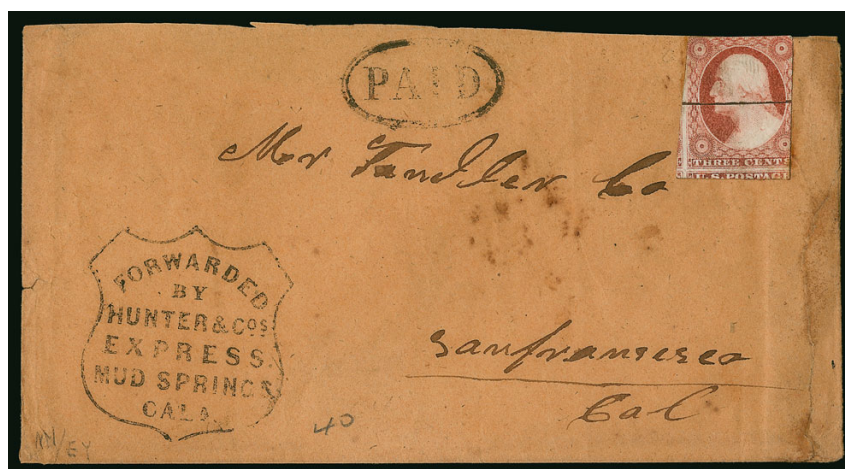 PAID
THREE CENT
U.S. POSTAG
Mr Tandler Co
FORWARDED
BY
HUNTER & COS
EXPRESS.
MUD SPRINGS
CALA.
sanfrancisco
Cal
40